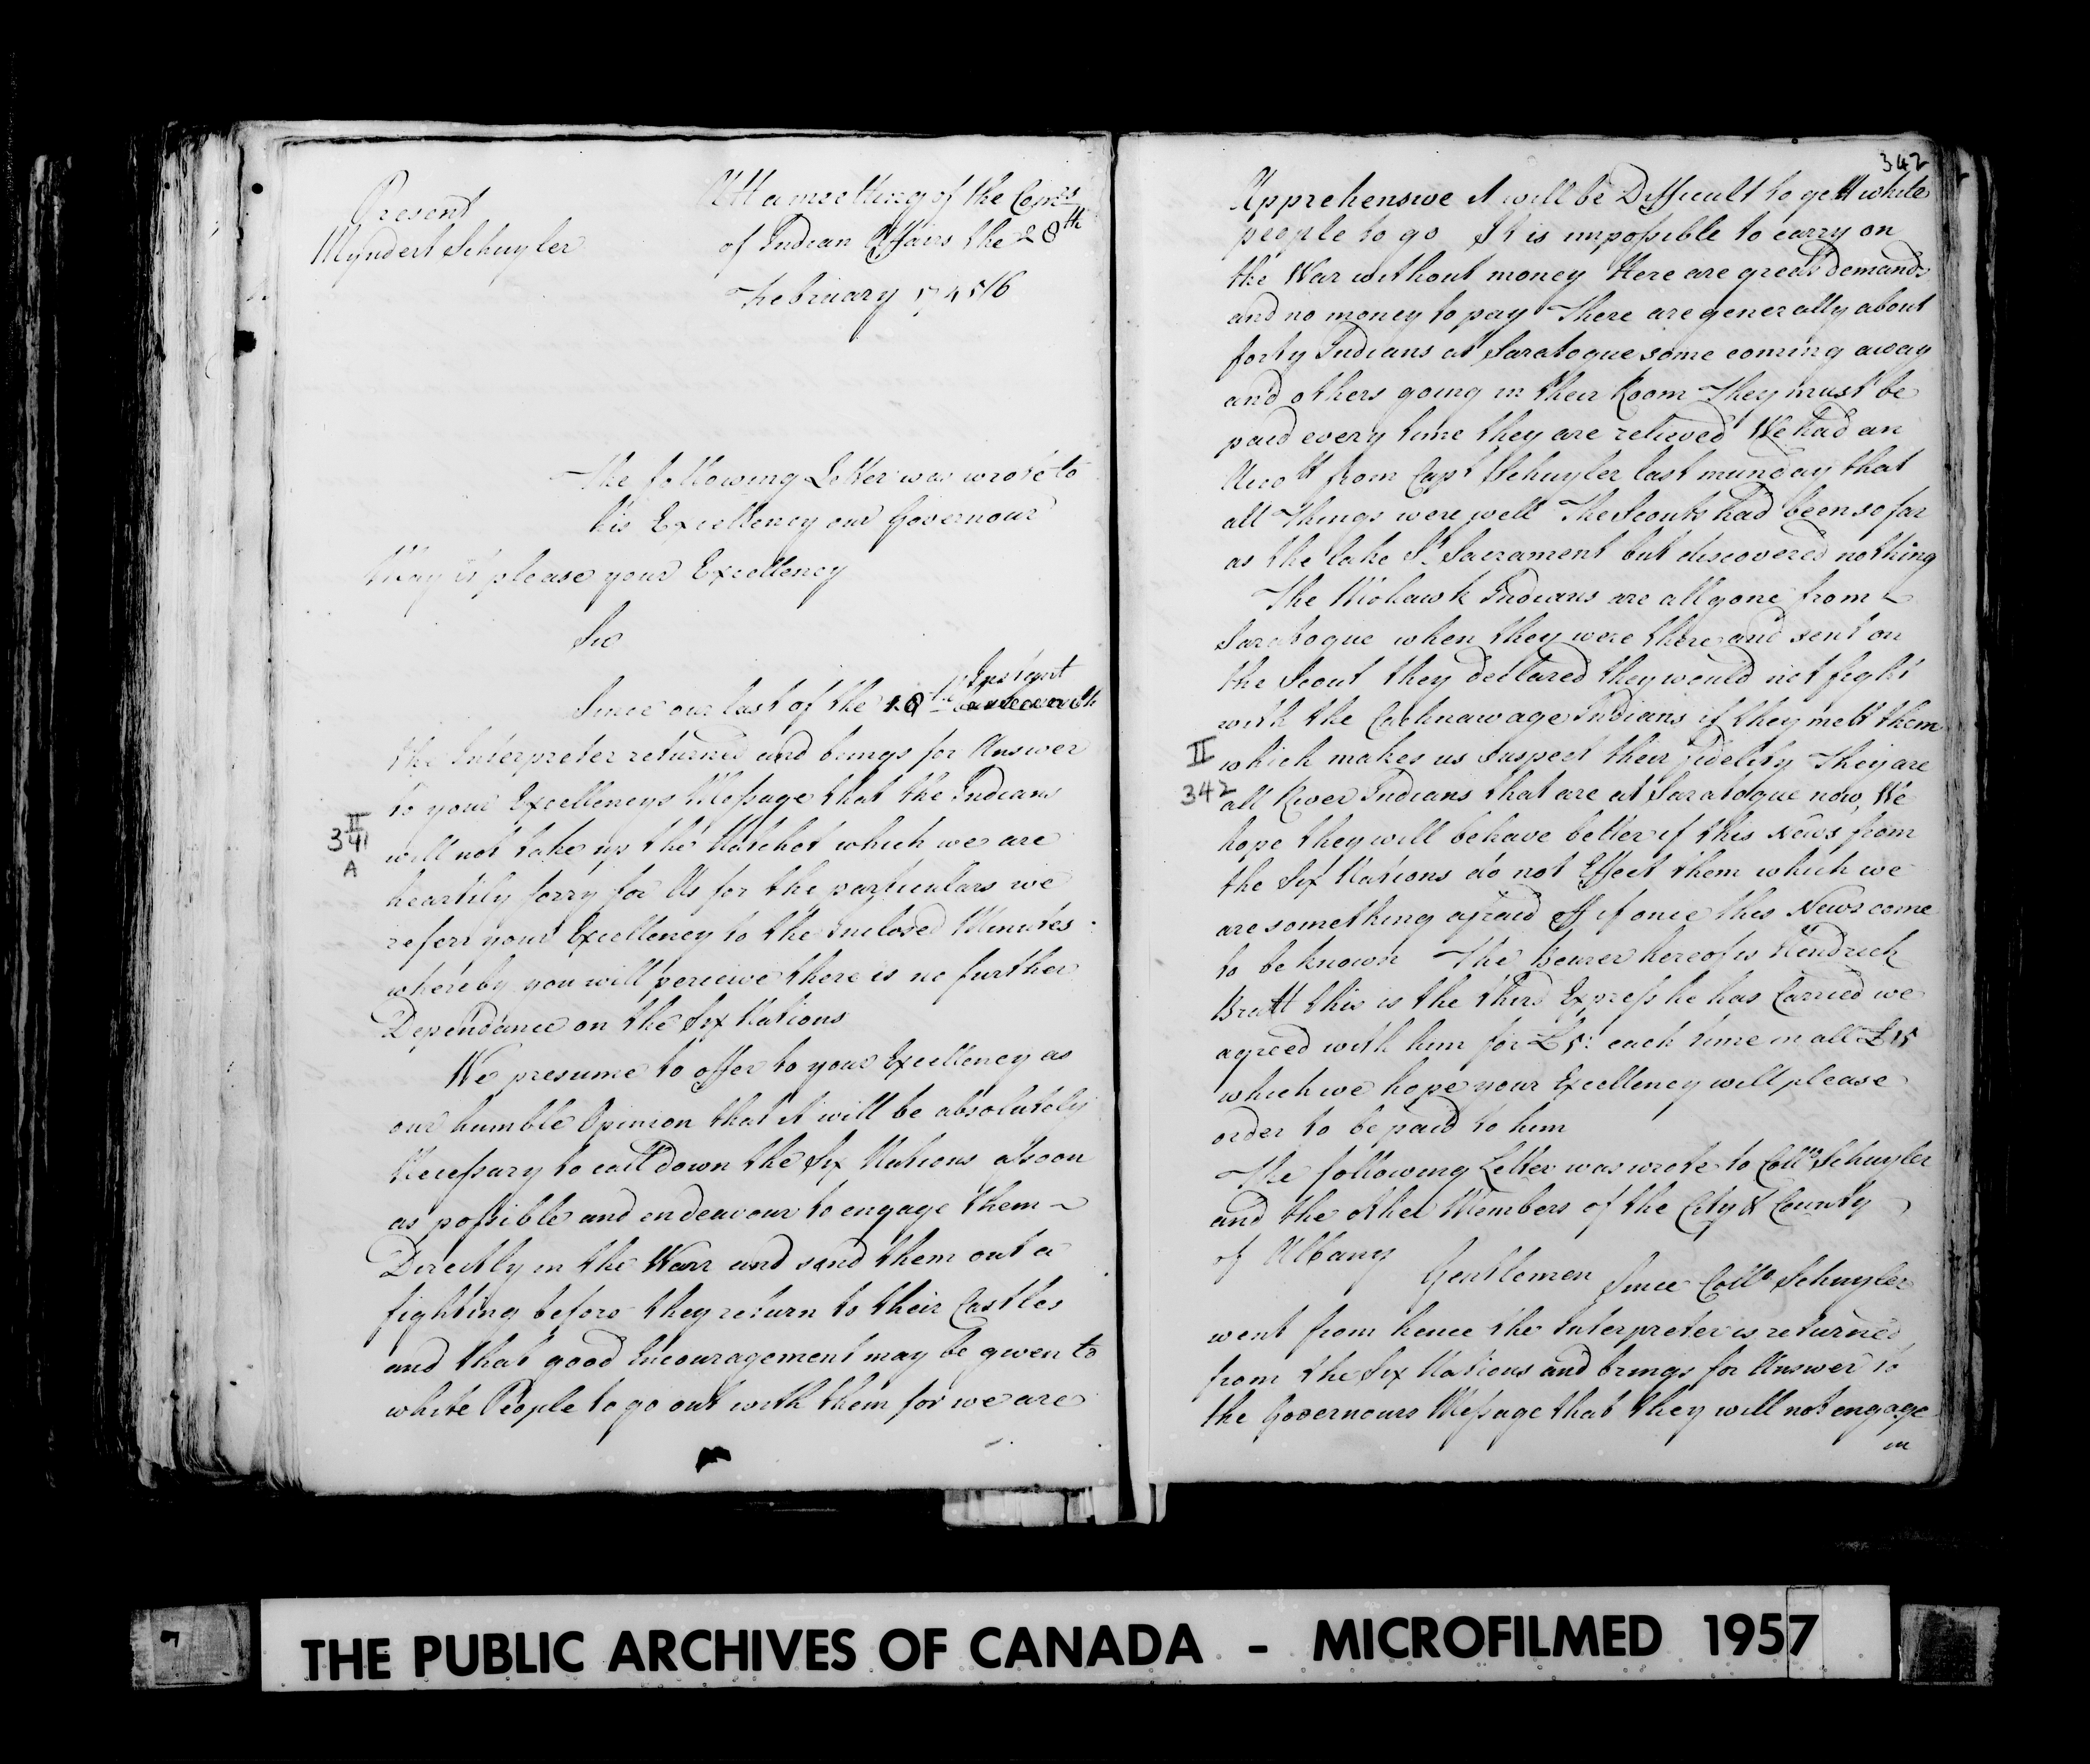 Present
Myndert Schuyler
Att a meeting of the Comrs
of Indian Affairs the 28th
February 1745/6
The following Letter was wrote to
his Excellency our Governour
May it please your Excellency
Sir
Instant
Since our last of the 18th
the Interpreter returned and brings for Answer
to your Excellencys Message that the Indians
II
341
A
will not take up the Hatchet which we are
heartily sorry for Us for the particulars we
referr your Excellency to the Inclosed Minutes
whereby you will perceive there is no further
Dependance on the Six Nations
We presume to offer to your Excellency as
our humble Opinion that it will be absolutely
Necessary to call down the Six Nations assoon
as possible and endeavour to engage them
Directly in the Warr and send them out a
fighting before they return to their Castles
and that good Incouragement may be given to
white People to go out with them for we are
342
Apprehensive it will be Difficult to gett white
people to go It is impossible to carry on
the War without money Here are great Demands
and no money to pay There are generally about
forty Indians at Saratogue some coming away
and others going in their Room They must be
paid every time they are relieved We had an
Accott from Capt Schuyler last munday that
all things were well The Scouts had been so far
as the lake St. Sacrament but discovered nothing
The Mohawk Indians are all gone from
Saratogue when they were there and sent on
the Scout they declared they would not fight
with the Cachnawage Indians if they mett them
II
342
which makes us suspect their fidelity They are
all River Indians that are at Saratogue now, We
hope they will behave better if this News from
the Six Nations do not Effect them which we
are something afraid off if once this News come
to be known The bearer hereof is Hendrick
Bratt this is the third Express he has Carried we
agreed with him for £5: each time in all £15
which we hope your Excellency will please
order to be paid to him
The following Letter was wrote to Collo Schuyler
and the other Members of the City & County
of Albany
Gentlemen Since Collo Schuyler
went from hence the Interpreter is returned
from the Six Nations and brings for Answer to
the Governours Message that they will not engage
in
THE PUBLIC ARCHIVES OF CANADA - MICROFILMED 1957